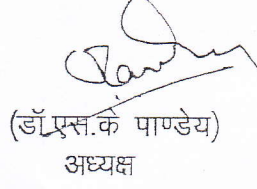 (डॉ.एस.के पाण्डेय)
अध्यक्ष